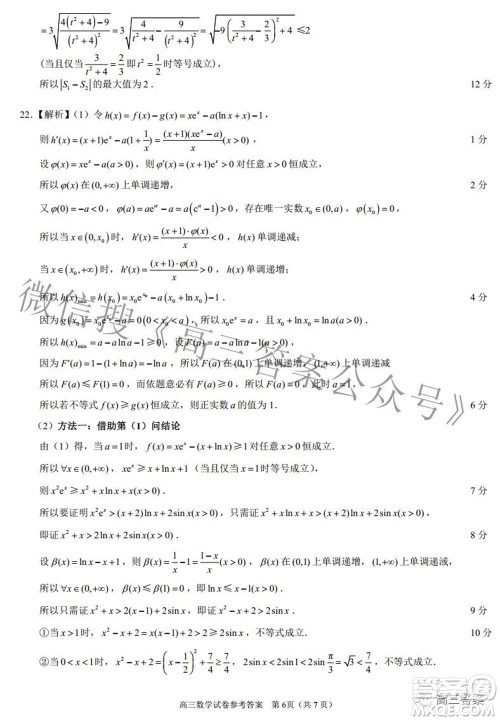 $=3\sqrt{\frac{4(t^2+4)-9}{(t^2+4)^2}}=3\sqrt{\frac{4}{t^2+4}-\frac{9}{(t^2+4)^2}}=\sqrt{-9\left(\frac{3}{t^2+4}-\frac{2}{3}\right)^2+4}\leqslant 2$
(当且仅当 $\frac{3}{t^2+4}=\frac{2}{3}$ 即 $t^2=\frac{1}{2}$ 时等号成立),
所以 $|S_1-S_2|$ 的最大值为 2. 12 分
22.【解析】(1) 令 $h(x)=f(x)-g(x)=xe^x-a(\ln x+x)-1$,
则 $h'(x)=(x+1)e^x-a(1+\frac{1}{x})=\frac{(x+1)(xe^x-a)}{x}(x>0)$, 1 分
设 $\varphi(x)=xe^x-a(a>0)$, 则 $\varphi'(x)=(x+1)e^x>0$ 对任意 $x>0$ 恒成立,
所以 $\varphi(x)$ 在 $(0,+\infty)$ 上单调递增, 2 分
又 $\varphi(0)=-a<0$, $\varphi(a)=ae^a-a=a(e^a-1)>0$, 存在唯一实数 $x_0\in(0,a)$, $\varphi(x_0)=0$
所以当 $x\in(0,x_0)$ 时, $h'(x)=\frac{(x+1)\cdot\varphi(x)}{x}<0$, $h(x)$ 单调递减;
当 $x\in(x_0,+\infty)$ 时, $h'(x)=\frac{(x+1)\cdot\varphi(x)}{x}>0$, $h(x)$ 单调递增.
所以 $h(x)_{\min}=h(x_0)=x_0e^{x_0}$ 4 分
因为 $x_0e^{x_0}-a=0(x_0>0)$, 所以 $x_0e^{x_0}=a$, 且 $x_0+\ln x_0=\ln a(x_0>0)$.
所以 $h(x)_{\min}=a-a\ln a-1\geqslant 0$
因为 $F'(a)=1-(1+\ln a)=-\ln a$, 所以 $F(a)$ 在 $(0,1)$ 上单调递增, $(1,+\infty)$ 上单调递减
所以 $F(a)\leqslant F(1)=0$, 而依题意必有 $F(a)\geqslant 0$, 所以 $F(a)=0$, 此时 $a=1$,
所以若不等式 $f(x)\geqslant g(x)$ 恒成立, 则正实数 $a$ 的值为 1. 6 分
(2) 方法一: 借助第 (1) 问结论
由 (1) 得, 当 $a=1$ 时, $f(x)=xe^x-(x+\ln x)\geqslant 1$ 对任意 $x>0$ 恒成立,
所以 $\forall x\in(0,+\infty)$, $xe^x\geqslant x+\ln x+1$ (当且仅当 $xe^x=1$ 时等号成立),
则 $x^2e^x\geqslant x^2+x\ln x+x(x>0)$. 7 分
所以要证明 $x^2e^x>(x+2)\ln x+2\sin x(x>0)$, 只需证 $x^2+x\ln x+x>(x+2)\ln x+2\sin x(x>0)$,
即证 $x^2+x>2\ln x+2\sin x(x>0)$. 8 分
设 $\beta(x)=\ln x-x+1$, 则 $\beta'(x)=\frac{1}{x}-1=\frac{1-x}{x}(x>0)$, $\beta(x)$ 在 $(0,1)$ 上单调递增, $(1,+\infty)$ 上单调递减,
所以 $\forall x\in(0,+\infty)$, $\beta(x)\leqslant\beta(1)=0$, 即 $\ln x\leqslant x-1(x>0)$.
所以只需证 $x^2+x>2(x-1)+2\sin x$, 即证 $x^2-x+2>2\sin x(x>0)$. 9 分
①当 $x>1$ 时, $x^2-x+2=x(x-1)+2>2\geqslant 2\sin x$, 不等式成立. 10 分
②当 $0<x<1$ 时, $x^2-x+2=\left(x-\frac{1}{2}\right)^2+\frac{7}{4}\geqslant\frac{7}{4}$, $2\sin x\leqslant 2\sin 1<2\sin\frac{\pi}{3}=\sqrt{3}<\frac{7}{4}$,
高三数学试卷参考答案 第 6页(共 7 页)
微信搜《高三答案公众号》
高三答案